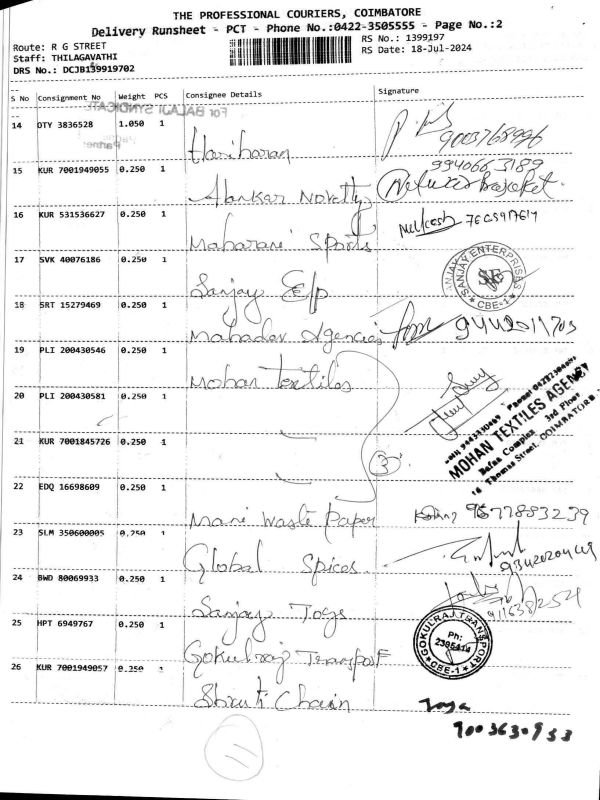 THE PROFESSIONAL COURIERS, COIMBATORE
Delivery Runsheet - PCT - Phone No.:0422-3505555 - Page No.:2
Route: R G STREET
RS No.: 1399197
Staff: THILAGAVATHI
RS Date: 18-Jul-2024
DRS No.: DCJB139919702
S No Consignment No Weight PCS Consignee Details Signature
For BALAJI SYNDICATE
Partner
14 OTY 3836528 1.050 1 Hariharan 9003768996
15 KUR 7001949055 0.250 1 Alankar Novelty 9940663189
16 KUR 531536627 0.250 1 Maharani Sports
17 SVK 40076186 0.250 1 Sanjay E/p SANJAY ENTERPRISAS SE CBE-1
18 SRT 15279469 0.250 1 Mahadev Agencies
19 PLI 200430546 0.250 1 Mohan Textiles
20 PLI 200430581 0.250 1
MOHAN TEXTILES AGENCY
Bafna Complex 3rd Floor
Thomas Street, COIMBATORE
21 KUR 7001845726 0.250 1
3
22 EDQ 16698609 0.250 1 Mani Waste Paper 9677883239
23 SLM 350600005 0.250 1 Global Spices
24 BWD 80069933 0.250 1 Sanjay Toys
25 HPT 6949767 0.250 1 Gokulraj Transport GOKULRAJ TRANSPORT Ph: CBE-1
26 KUR 7001949057 0.250 1 Shruti Chain Jaya
9003630933